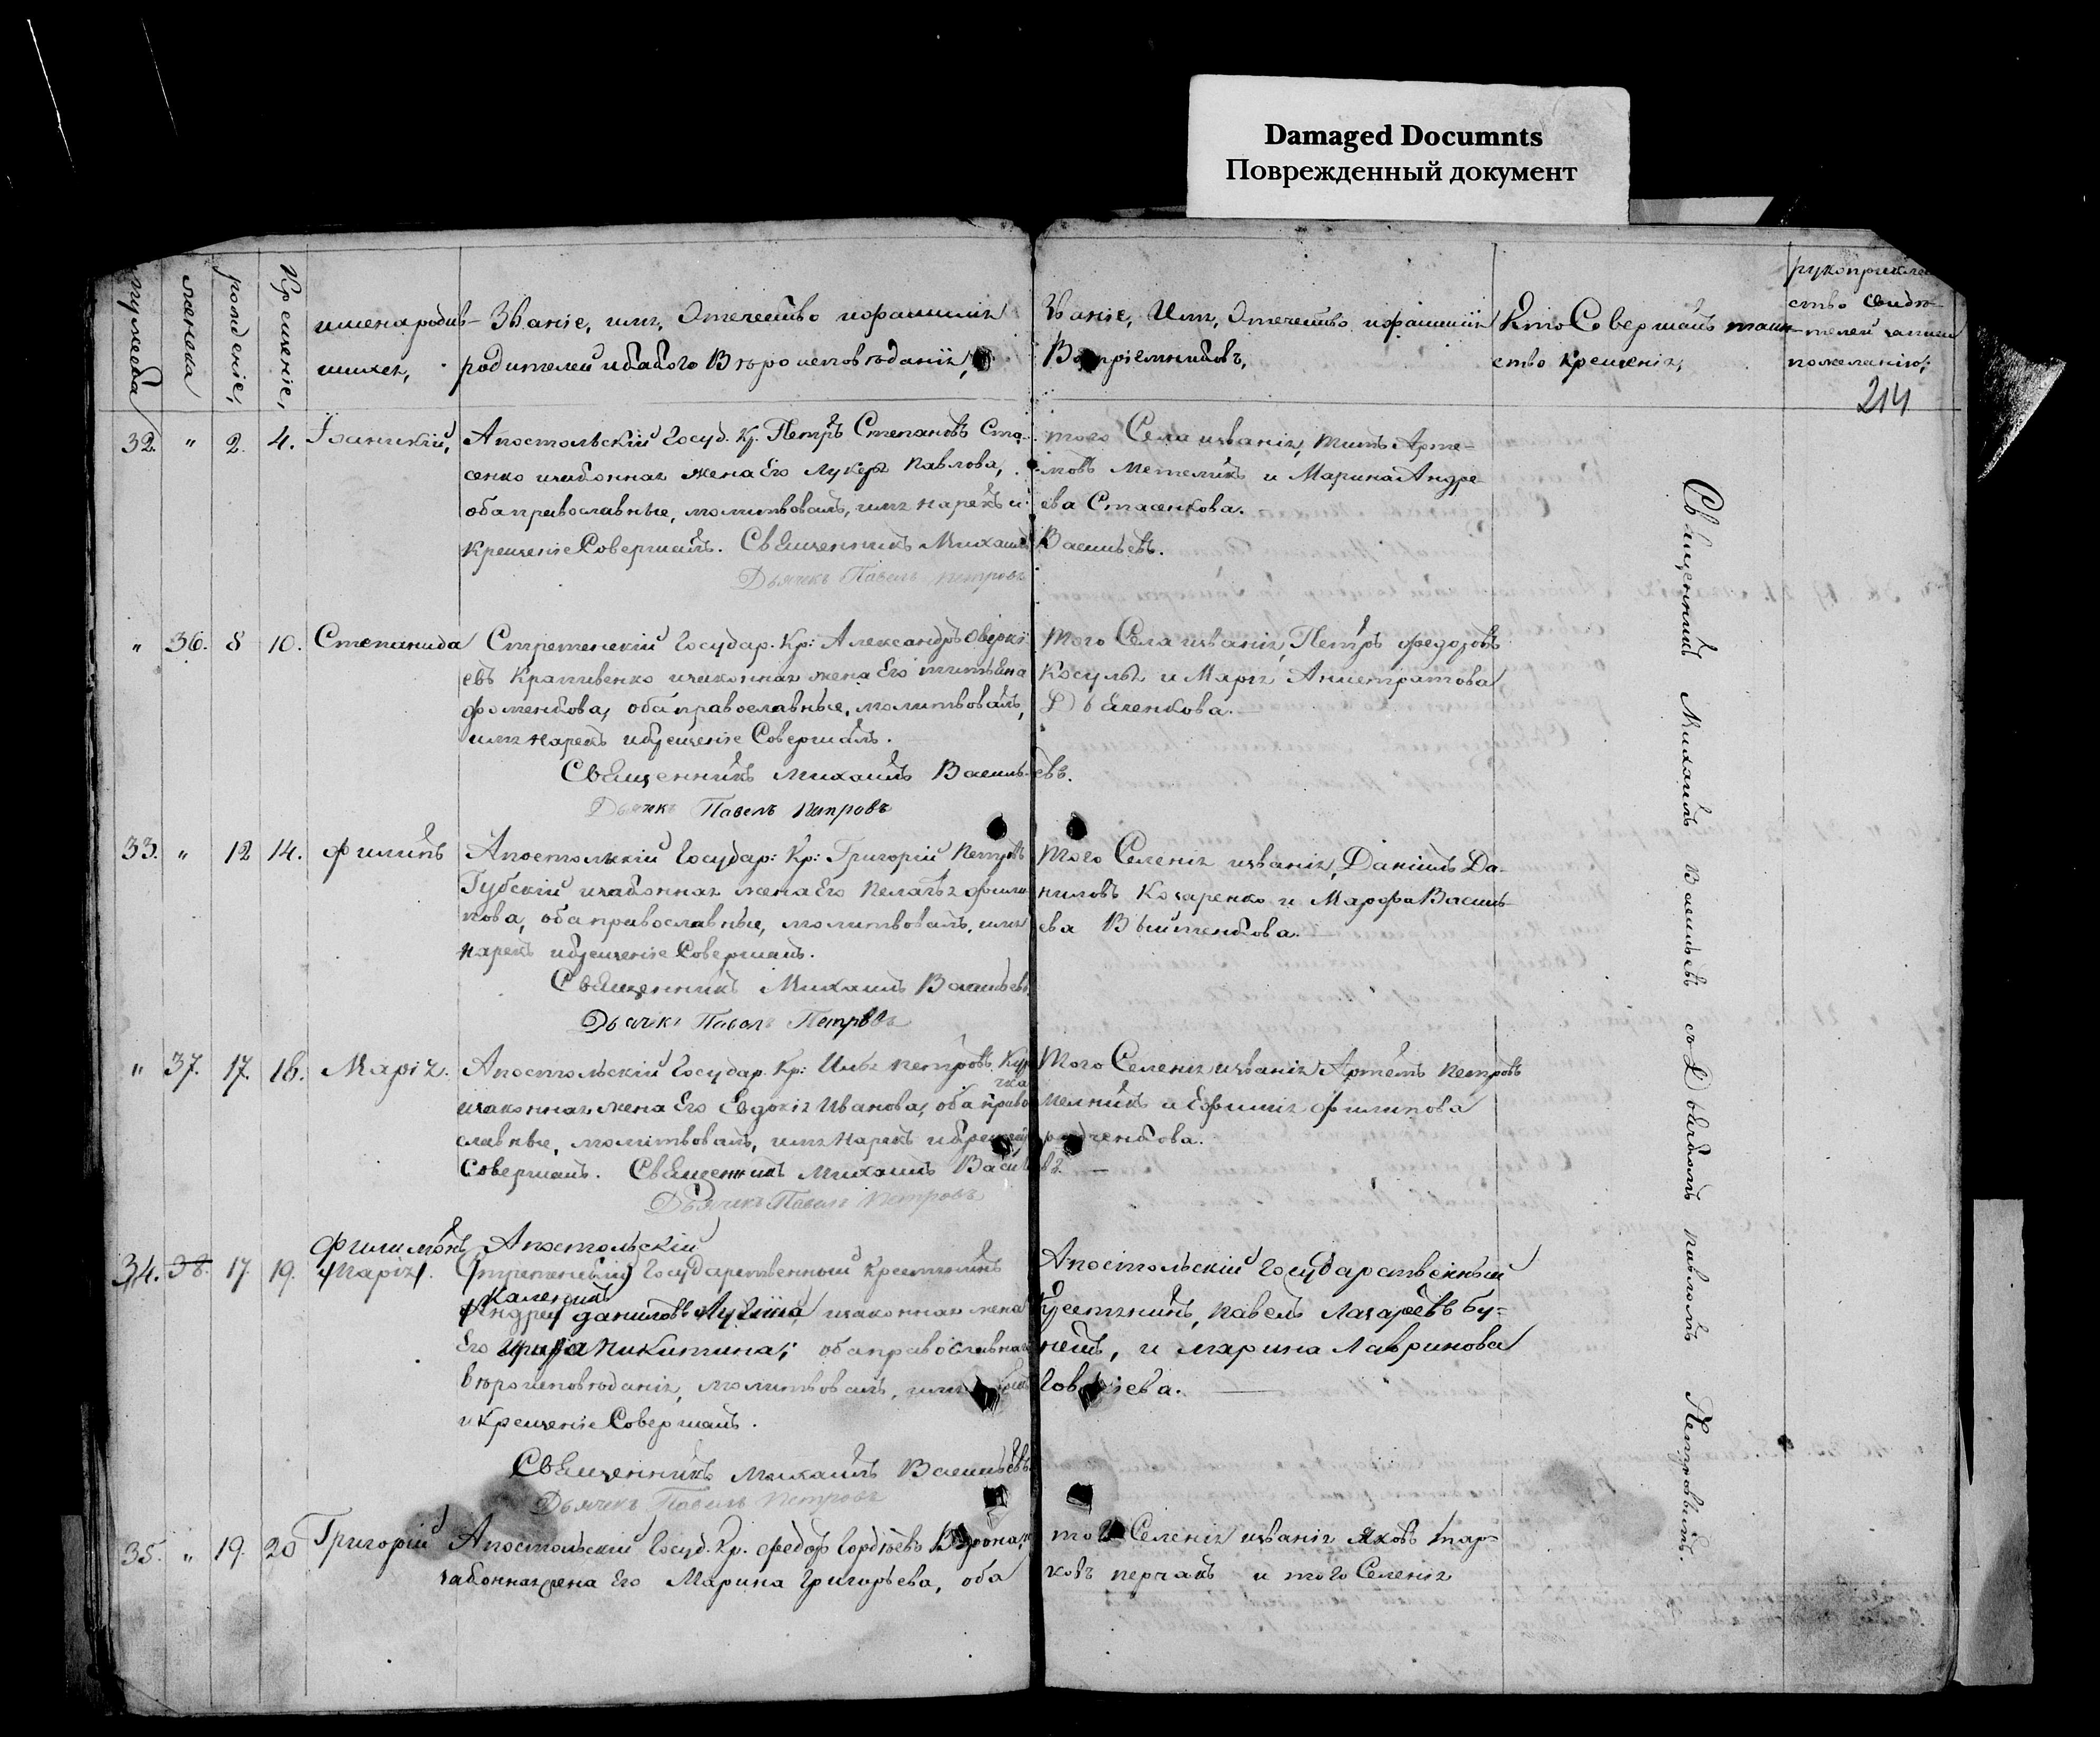 Damaged Documnts
Поврежденный документ
мужеска
женска
рожденіе,
Крещеніе,
имена родив-
шихся,
Званіе, имя, Отечество и фамилія
родителей и какого Вѣроисповѣданія,
Званіе, Имя, Отечество и фамилія
Воспріемниковъ,
Кто Совершалъ таин-
ство крещенія,
рукоприклад
ство свидѣ-
телей записи
по желанію;
214
32. " 2. 4. Іоаникій,
Апостольскій Госуд. Кр. Петръ Степановъ Ста-
сенко и законная жена Его Лукерья Павлова,
оба православные, молитвовалъ, имя нарекъ и
крещеніе Совершалъ. Священникъ Михаилъ Васильевъ.
Дьячекъ Павелъ Петровъ
того Села и званія, Титъ Арте-
мовъ Метеликъ и Марина Андре-
ева Стасенкова.
" 36. 8 10. Степанида
Стретенскій Государ. Кр: Александръ Оверкі
евъ Крапивенко и законная жена Его
фоменкова, оба православные, молитвовалъ,
имя нарекъ и крещеніе Совершалъ.
Священникъ Михаилъ Васильевъ.
Дьячкъ Павелъ Петровъ
того Села и званія, Петръ федоровъ
Косуля и Марія Анистратова
Дьяченкова.
33. " 12 14. филипъ
Апостольскій Государ: Кр: Григорій Петровъ
Губскій и законная жена Его Пелагѣя фили
пова, оба православные, молитвовалъ, имя
нарекъ и крещеніе Совершалъ.
Священникъ Михаилъ Васильевъ
Дьячекъ Павелъ Петровъ
того Селенія и званія, Даніилъ Да-
ниловъ Козаренко и Марфа Василь-
ева
" 37. 17. 18. Марія.
Апостольскій Государ. Кр: Илья Петровъ
и законная жена Его Евдокія Иванова, оба право
славные, молитвовалъ, имя нарекъ и крещеніе
Совершалъ. Священникъ Михаилъ Васильевъ
Дьячекъ Павелъ Петровъ
того Селенія и званія Артемъ Петровъ
мелникъ и Ефимія филипова
34. 38. 17. 19. филимонъ
Марія.
Апостольскій
Стретенскій Государственный Крестьянинъ
Андрей даниловъ и законная жена
Его Никитина; оба православнаго
вѣроисповѣданія, молитвовалъ, имя
и крещеніе Совершалъ.
Священникъ Михаилъ Васильевъ
Дьячекъ Павелъ Петровъ
Апостольскій Государственный
Крестьянинъ, Павелъ Лазаревъ Бу-
нецъ, и марина Лавринова
35. " 19. 20 Григорій
Апостольскій Госуд. Кр. федоръ Гордѣевъ
законная жена Его Марина Григорьева, оба
того Селенія и званія Яковъ
перчакъ и того Селенія
Священникъ Михаилъ Васильевъ съ Дьячкомъ Павломъ Петровымъ.